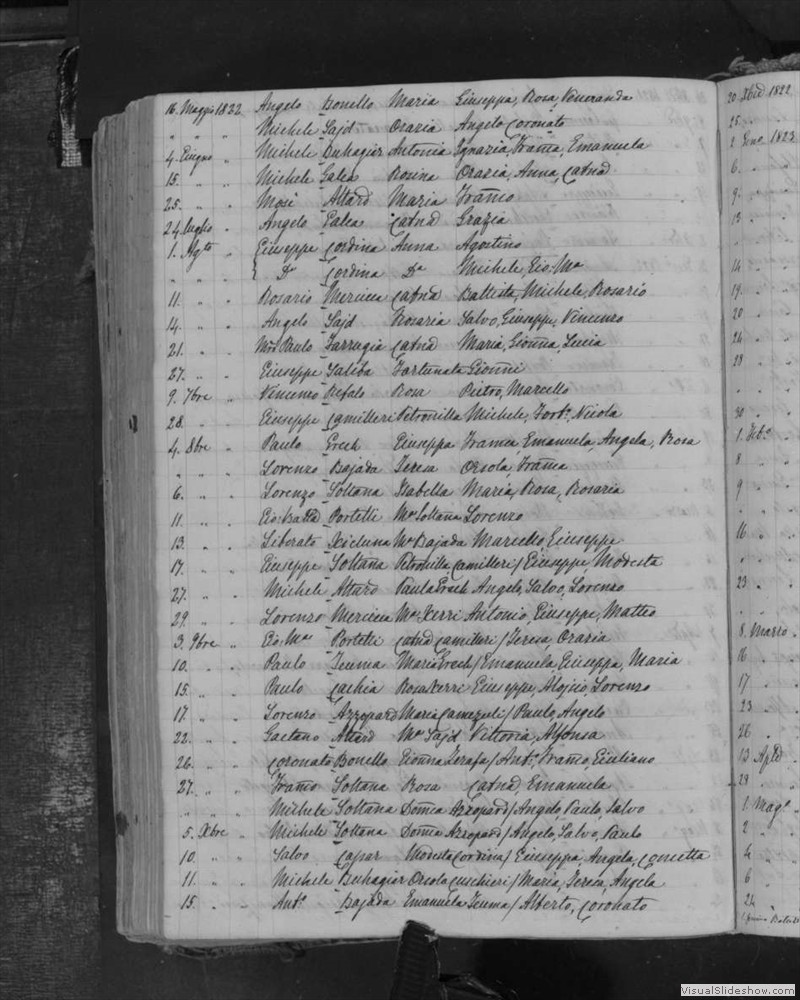 16. Maggio 1822 Angelo Bonello Maria Giuseppa, Rosa, Veneranda
" " " Michele Sajd Orazia Angelo Coronato
4. Giugno " Michele Buhagiar Antonia Ignazia, Franca, Emanuela
15. " " Michele Galea Rosina Orazia, Anna, Catnd
25. " " Mosè Attard Maria Franco
24. luglio " Angelo Galea Catnd Grazia
1. Agto " Giuseppe Cordina Anna Agostino
" " " Do Cordina Da Michele, Gio: Ma
11. " " Rosario Mercieca Catnd Battista, Michele, Rosario
14. " " Angelo Sajd Rosaria Salvo, Giuseppe, Vincenzo
21. " " Farrugia Catnd Maria, Gionna, Lucia
27. " " Giuseppe Saliba Fortunata Gionni
9. 7bre " Vincenzo Refalo Rosa Pietro, Marcello
28. " " Giuseppe Camilleri Petronilla Michele, Forto, Nicola
4. 8bre " Paulo Grech Giuseppa Franca, Emanuela, Angela, Rosa
" " " Lorenzo Bajada Teresa Orsola, Franca
6. " " Lorenzo Soltana Isabella Maria, Rosa, Rosaria
11. " " Gio: Batta Portelli Ma Soltana Lorenzo
13. " " Liberato Xicluna Ma Bajada Marcello, Giuseppe
17. " " Giuseppe Soltana Petronilla Camilleri / Giuseppe, Modesta
27. " " Michele Attard Paula Grech Angelo, Salvo, Lorenzo
29. " " Lorenzo Mercieca Ma Xerri Antonio, Giuseppe, Matteo
3. 9bre " Gio: Ma Portelli Catnd Camilleri / Teresa, Orazia
10. " " Paulo Teuma Maria Grech / Emanuela, Giuseppa, Maria
15. " " Paulo Cachia Rosa Xerri Giuseppe, Aloisio, Lorenzo
17. " " Lorenzo Azzopard Maria Camenzuli / Paulo, Angelo
22. " " Gaetano Attard Ma Sajd Vittoria, Alfonsa
26. " " Coronato Bonello Gionna Zerafa / Anto, Franco, Giuliano
27. " " Franco Soltana Rosa Catnd Emanuela
" " " Michele Soltana Domca Azzopard / Angelo, Paulo, Salvo
5. Xbre " Michele Soltana Domca Azzopard / Angelo, Salvo, Paulo
10. " " Salvo Capar Modesta Cordina / Giuseppa, Angela, Concetta
11. " " Michele Buhagiar Orsola Cuschieri / Maria, Teresa, Angela
15. " " Anto Bajada Emanuela Teuma / Alberto, Coronato
20 Xbre 1822
25 "
2 Geno 1823
6 "
9 "
13 "
"
14 "
19 "
20 "
24 "
28 "
"
30 "
1. Febo "
8 "
9 "
"
16 "
"
23 "
"
8. Marzo "
16 "
17 "
23 "
26 "
13 Aple "
29 "
1. Mago "
2 "
4 "
6 "
24 "
VisualSlideshow.com